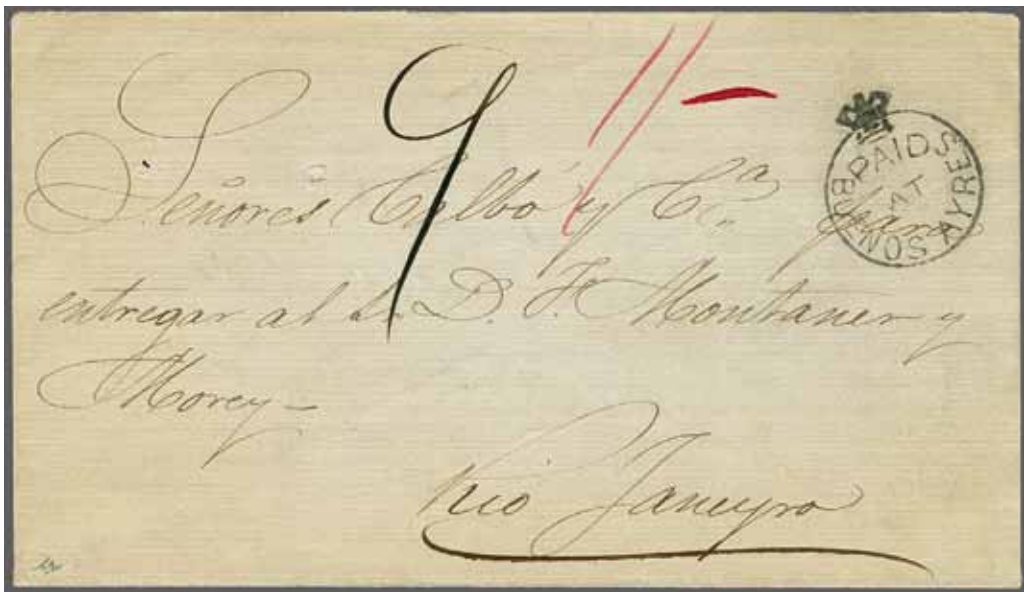 9 1/-
PAID AT BUENOS AYRES
Señores Calbó y Cª para
entregar al S. D. F. Montaner y
Morey-
Rio Janeyro